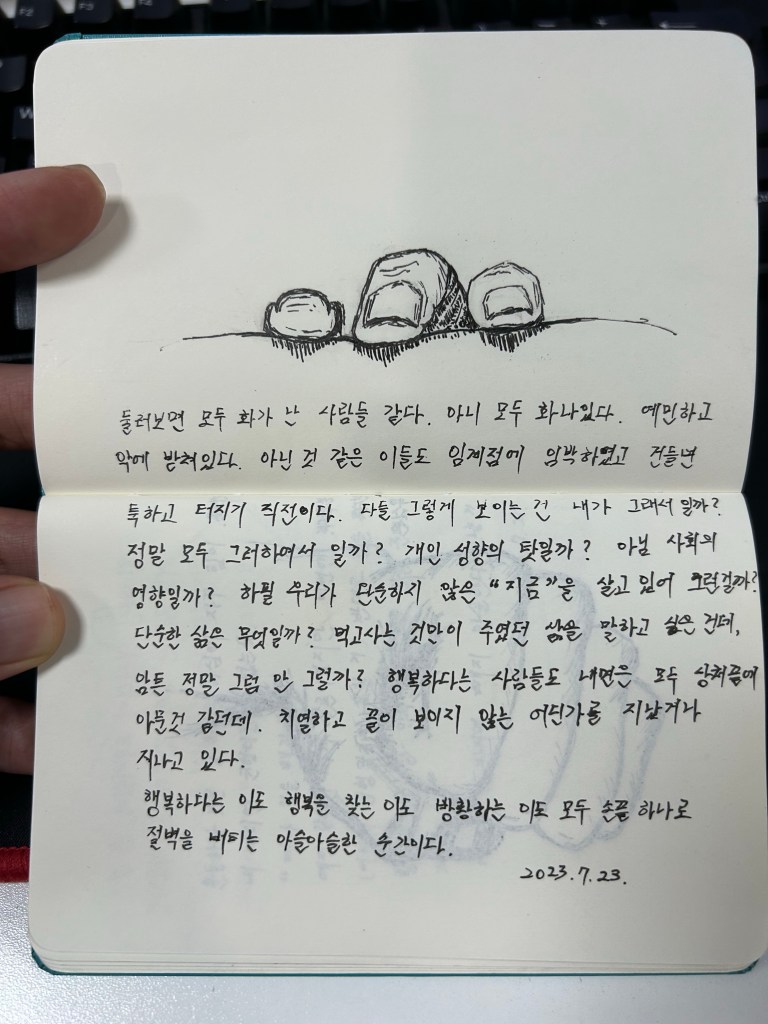 둘러보면 모두 화가 난 사람들 같다. 아니 모두 화나있다. 예민하고
악에 받쳐있다. 아닌 것 같은 이들도 임계점에 임박하였고 건들면
툭하고 터지기 직전이다. 다들 그렇게 보이는 건 내가 그래서 일까?
정말 모두 그러하여서 일까? 개인 성향의 탓일까? 아님 사회의
영향일까? 하필 우리가 단순하지 않은 "지금"을 살고 있어 그런걸까?
단순한 삶은 무엇일까? 먹고사는 것만이 주였던 삶을 말하고 싶은 건데,
암튼 정말 그럼 안 그럴까? 행복하다는 사람들도 내면은 모두 상처끝에
아문것 같던데. 치열하고 끝이 보이지 않는 어딘가를 지났거나
지나고 있다.
행복하다는 이도 행복을 찾는 이도 방황하는 이도 모두 손끝 하나로
절벽을 버티는 아슬아슬한 순간이다.
2023.7.23.
F2
F3
W